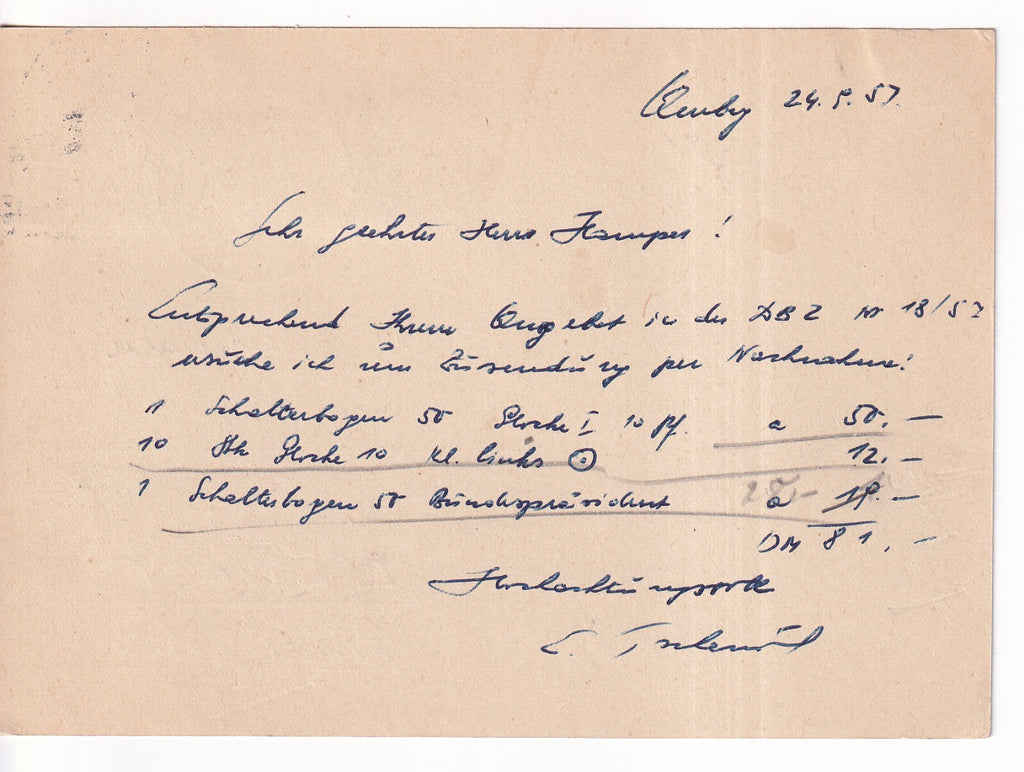 24. 5. 57.
Sehr geehrter Herr Kamper!
Entsprechend Ihrem Angebot in der DBZ Nr 18/57
ersuche ich um Zusendung per Nachnahme!
1 Schalterbogen 50 Glocke I 10 Pf. a 50.—
10 Stk Glocke 10 Kl. links ⊙ 12.—
1 Schalterbogen 50 Bundespräsident 28,- a 19.—
DM 81.—
Hochachtungsvoll